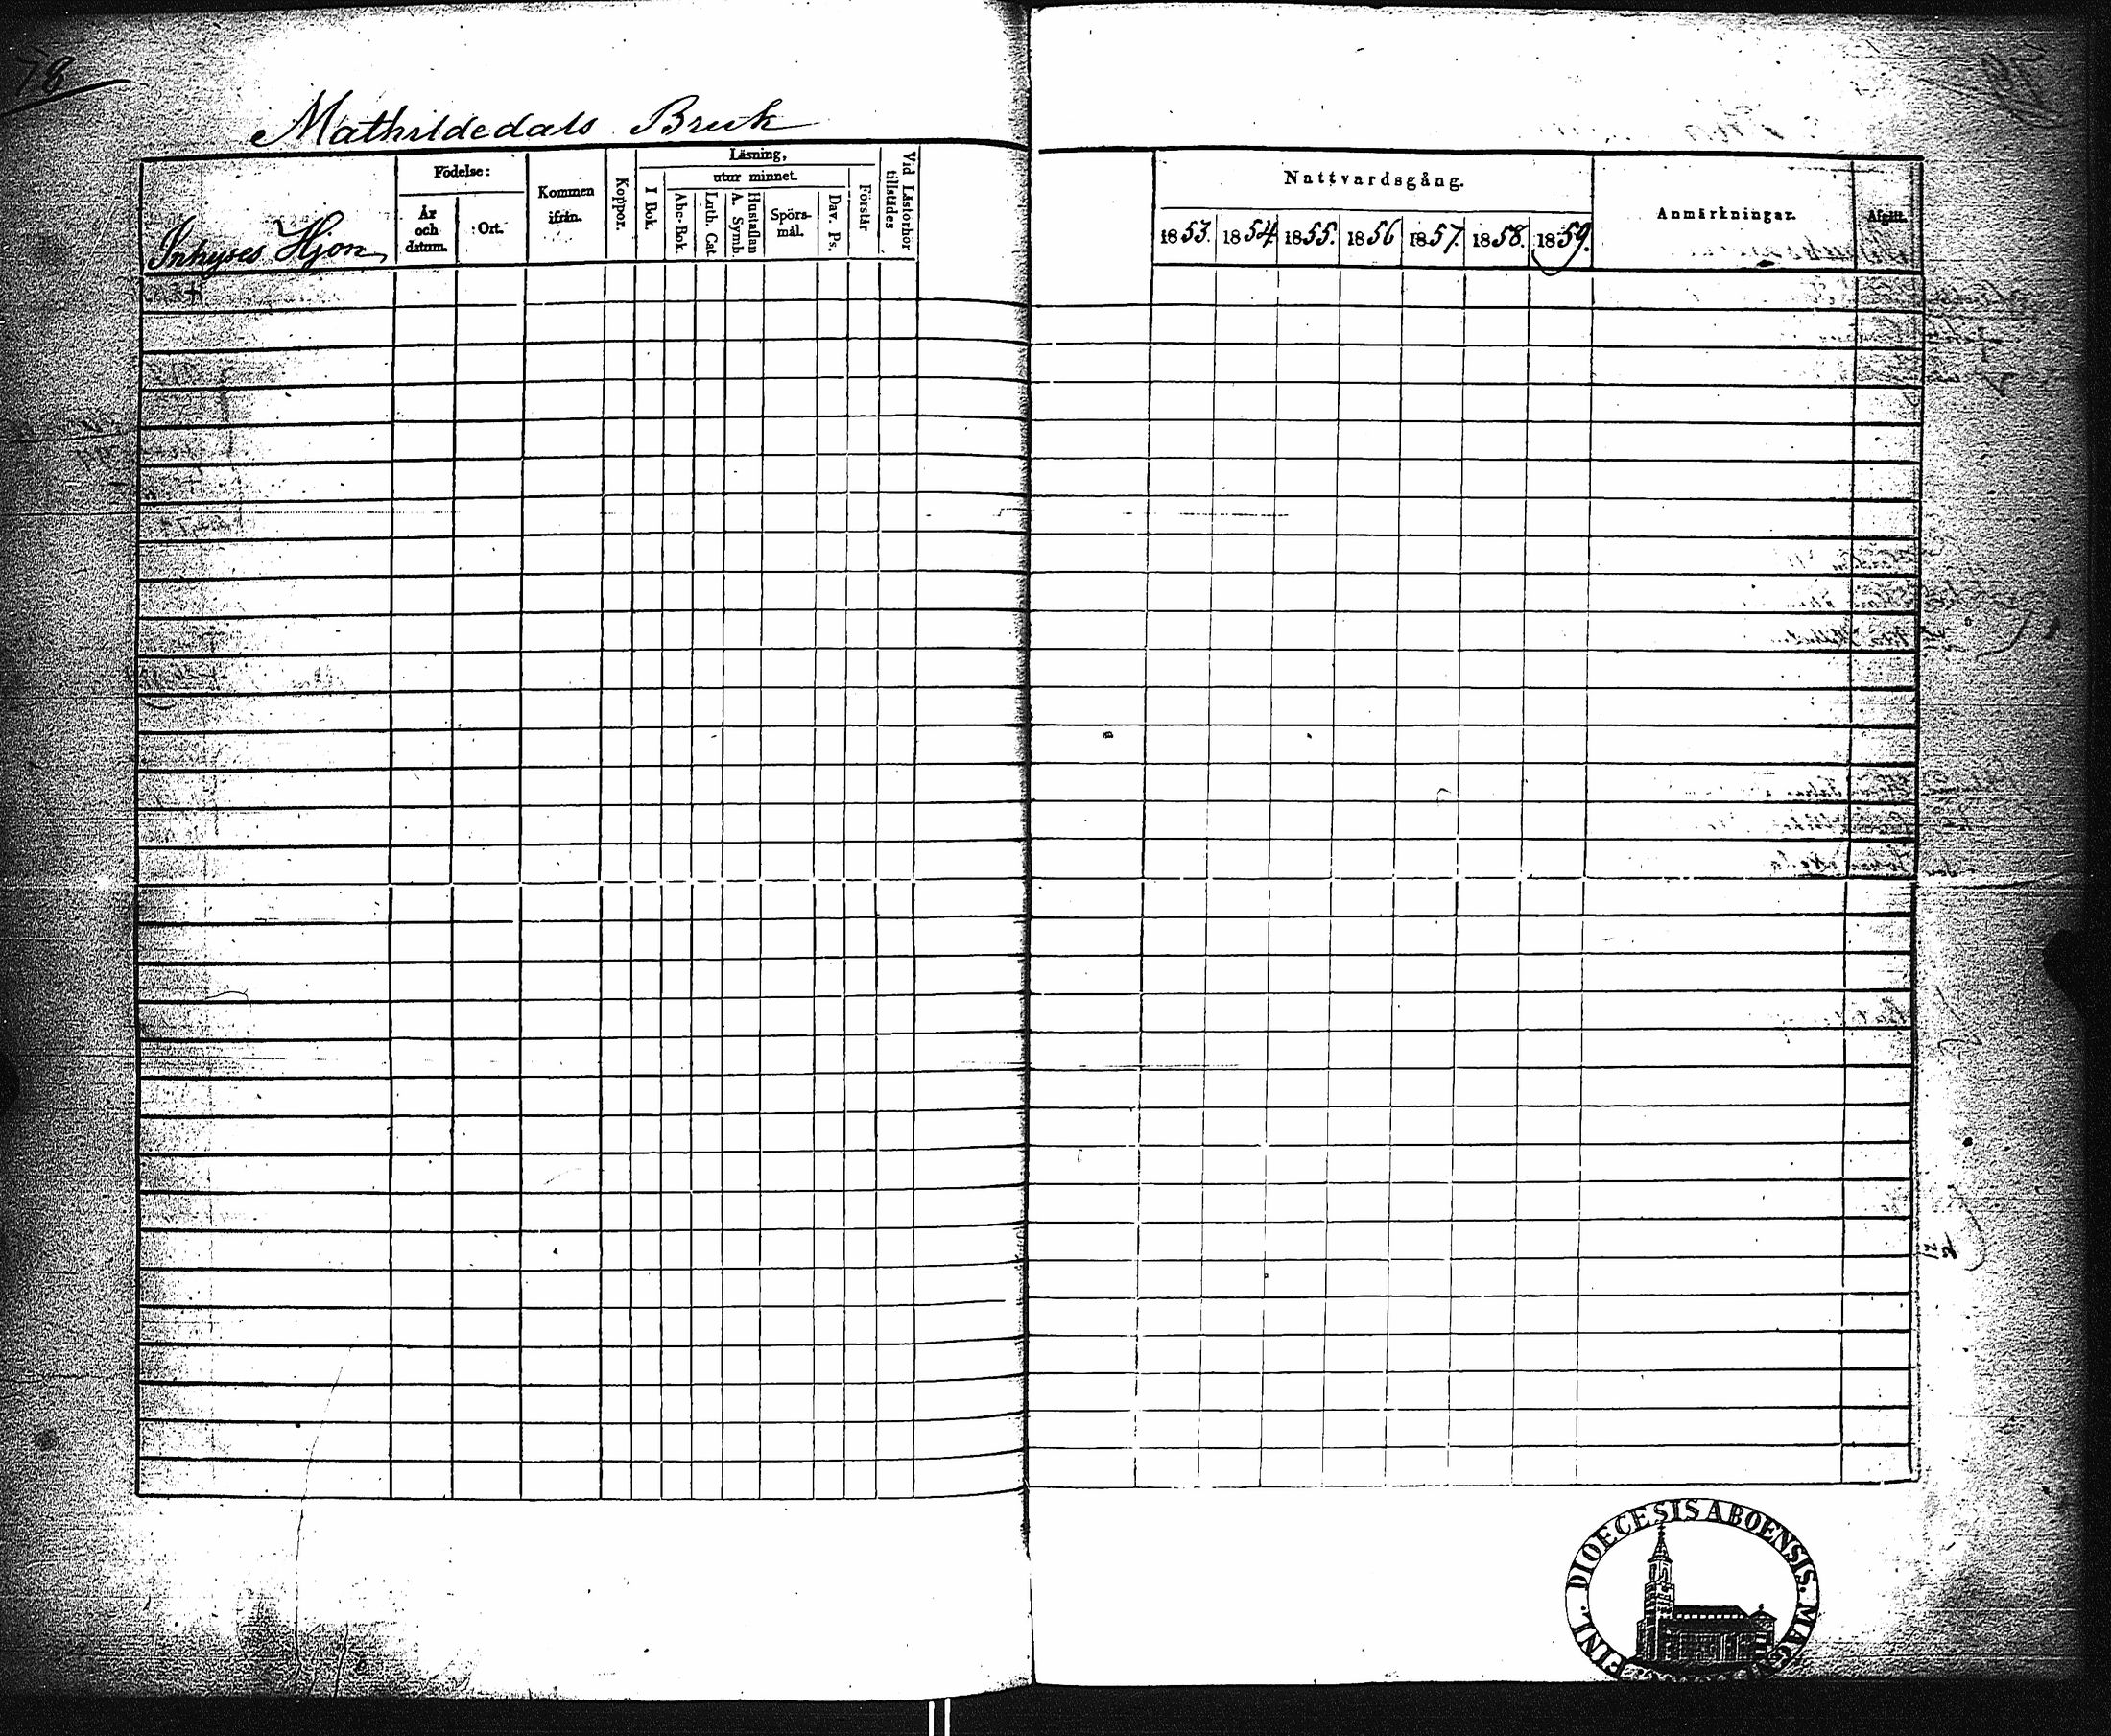 78
Mathildedals Bruk
Inhyses Hjon
Födelse:
År och datum.
Ort.
Kommen ifrån.
Koppor.
Läsning,
I Bok.
utur minnet.
Abc-Bok.
Luth. Cat.
Hustaflan A. Symb.
Spörs-mål.
Dav. Ps.
Förstår
Vid Läsförhör tillstädes
Nattvardsgång.
1853.
1854.
1855.
1856
1857.
1858.
1859.
Anmärkningar.
Afgått.
FINL. DIOECESIS ABOENSIS. MAGNI